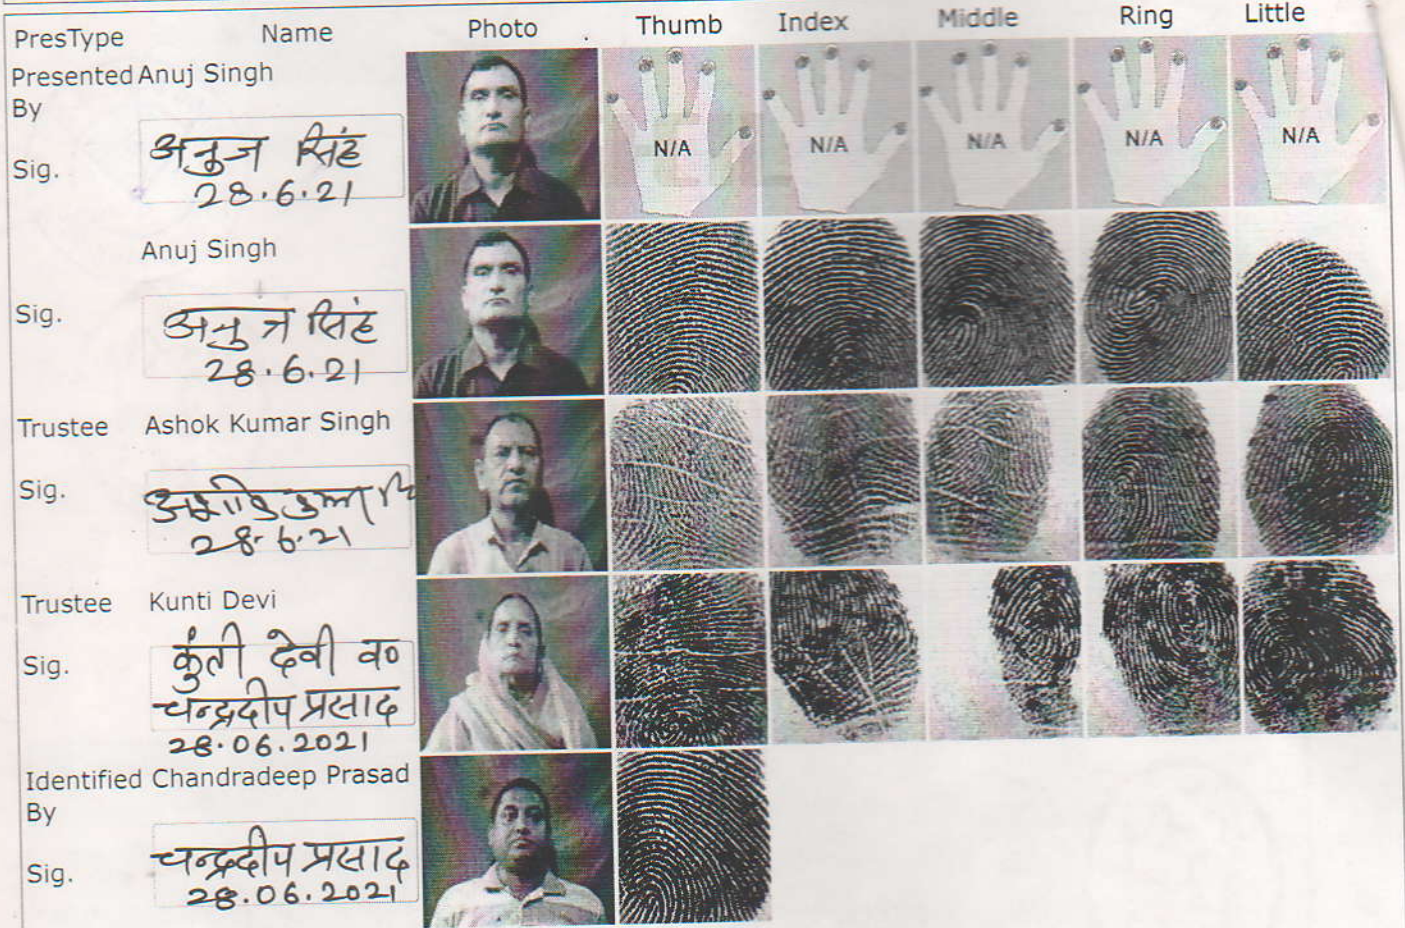 PresType Name Photo Thumb Index Middle Ring Little
Presented Anuj Singh
By
N/A N/A N/A N/A N/A
Sig. अनुज सिंह
28.6.21
Anuj Singh
Sig. अनुज सिंह
28.6.21
Trustee Ashok Kumar Singh
Sig. अशोक कुमार
28.6.21
Trustee Kunti Devi
Sig. कुंती देवी व०
चन्द्रदीप प्रसाद
28.06.2021
Identified Chandradeep Prasad
By
Sig. चन्द्रदीप प्रसाद
28.06.2021